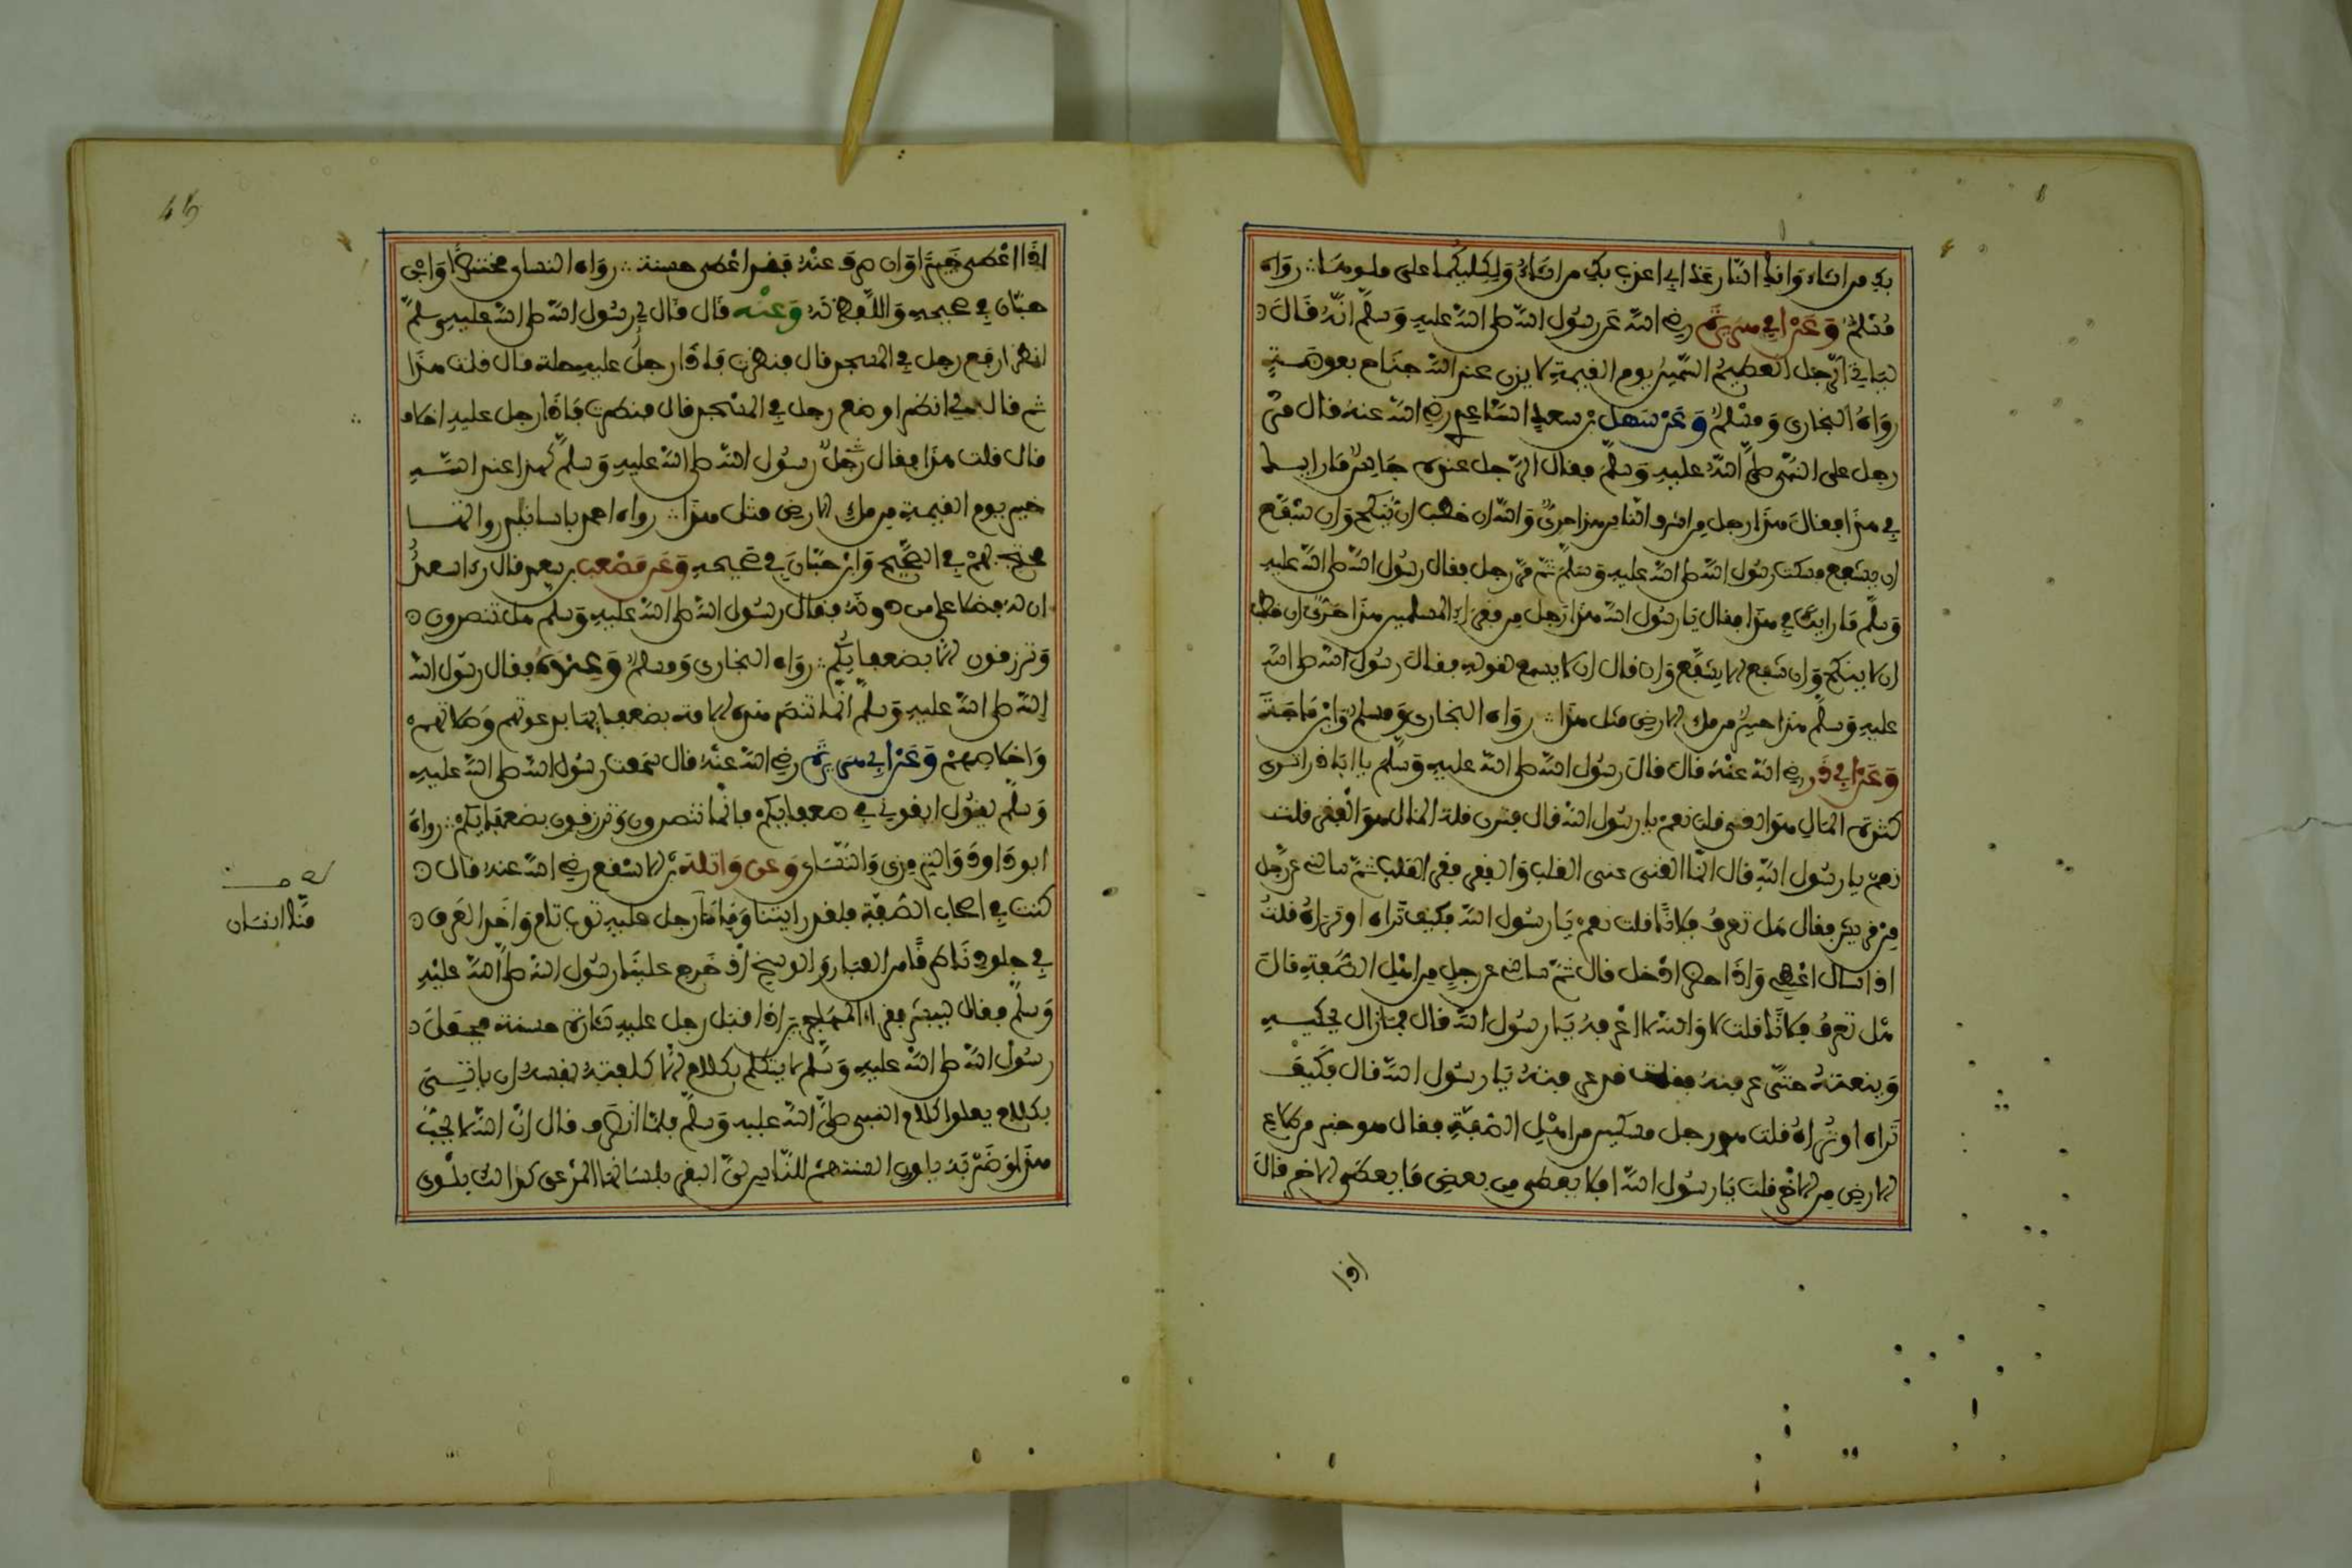 بك من اشاء وانك النار عذابي اعذب بك من اشاء ولكليكما على ملوها رواه
مسلم وعن ابي هريرة رضي الله عن رسول الله صلى الله عليه وسلم انه قال
لياتي الرجل العظيم السمين يوم القيمة لا يزن عند الله جناح بعوضة
رواه البخاري ومسلم وعن سهل بن سعد الساعدي رضي الله عنه قال مر
رجل على النبي صلى الله عليه وسلم فقال لرجل عنده جالس ما رايك
في هذا فقال هذا رجل من اشراف الناس هذا حري والله ان خطب ان ينكح وان شفع
ان يشفع فسكت رسول الله صلى الله عليه وسلم ثم مر رجل فقال رسول الله صلى الله عليه
وسلم ما رايك في هذا فقال يا رسول الله هذا رجل من فقراء المسلمين هذا حري ان خطب
ان لا ينكح وان شفع لا يشفع وان قال ان لا يسمع لقوله فقال رسول الله صلى الله
عليه وسلم هذا خير من ملء الارض مثل هذا رواه البخاري ومسلم وابن ماجة
وعن ابي ذر رضي الله عنه قال قال رسول الله صلى الله عليه وسلم يا ابا ذر اترى
كثرة المال هو الغنى قلت نعم يا رسول الله قال فترى قلة المال هو الفقر قلت
نعم يا رسول الله قال انما الغنى غنى القلب والفقر فقر القلب ثم سالني عن رجل
من قريش فقال هل تعرف فلانا قلت نعم يا رسول الله فكيف تراه او تراه قلت
اذا سال اعطي واذا حضر ادخل قال ثم سالني عن رجل من اهل الصفة فقال
هل تعرف فلانا قلت لا والله لا اعرفه يا رسول الله قال فما زال يحليه
وينعته حتى عرفته فقلت قد عرفته يا رسول الله قال فكيف
تراه او تراه قلت هو رجل مسكين من اهل الصفة فقال هو خير من طلاع
الارض من الاخر قلت يا رسول الله افلا يعطى من بعض ما يعطى الاخر فقال
اذا
اذا اعطى خيرا وان صرف عنه فقد اعطى حسنة رواه النسائي مختصرا وابن
حبان في صحيحه واللفظ له وعنه قال قال لي رسول الله صلى الله عليه وسلم
انظر ارفع رجل في المسجد قال فنظرت فاذا رجل عليه حلة قال قلت هذا
ثم قال لي انظر اوضع رجل في المسجد قال فنظرت فاذا رجل عليه اخلاق
قال قلت هذا فقال رسول الله صلى الله عليه وسلم لهذا عند الله
خير يوم القيمة من ملء الارض مثل هذا رواه احمد باسانيد رواتها
محتج بهم في الصحيح وابن حبان في صحيحه وعن مصعب بن سعد قال راى سعد
ان له فضلا على من دونه فقال رسول الله صلى الله عليه وسلم هل تنصرون
وترزقون الا بضعفايكم رواه البخاري ومسلم وعنده فقال رسول الله
الله صلى الله عليه وسلم انما تنصر هذه الامة بضعفايها بدعوتهم وصلاتهم
واخلاصهم وعن ابي هريرة رضي الله عنه قال سمعت رسول الله صلى الله عليه
وسلم يقول ابغوني في ضعفايكم فانما تنصرون وترزقون بضعفايكم رواه
ابو داود والترمذي والنسائي وعن واثلة بن الاسقع رضي الله عنه قال
كنت في اصحاب الصفة فلقد رايتنا وما منا رجل عليه ثوب تام واخذ العرق
في جلودنا طرقا من الغبار والوسخ اذ خرج علينا رسول الله صلى الله عليه
وسلم فقال ليبشر فقراء المهاجرين اذ اقبل رجل عليه شارة حسنة فجعل
رسول الله صلى الله عليه وسلم لا يتكلم بكلام الا كلفته نفسه ان ياتي
بكلام يعلوا كلام النبي صلى الله عليه وسلم فلما انصرف قال ان الله لا يحب
هذا وضربه يلوون السنتهم للناس لي البقر بلسانها المرعى كذالك يلوي